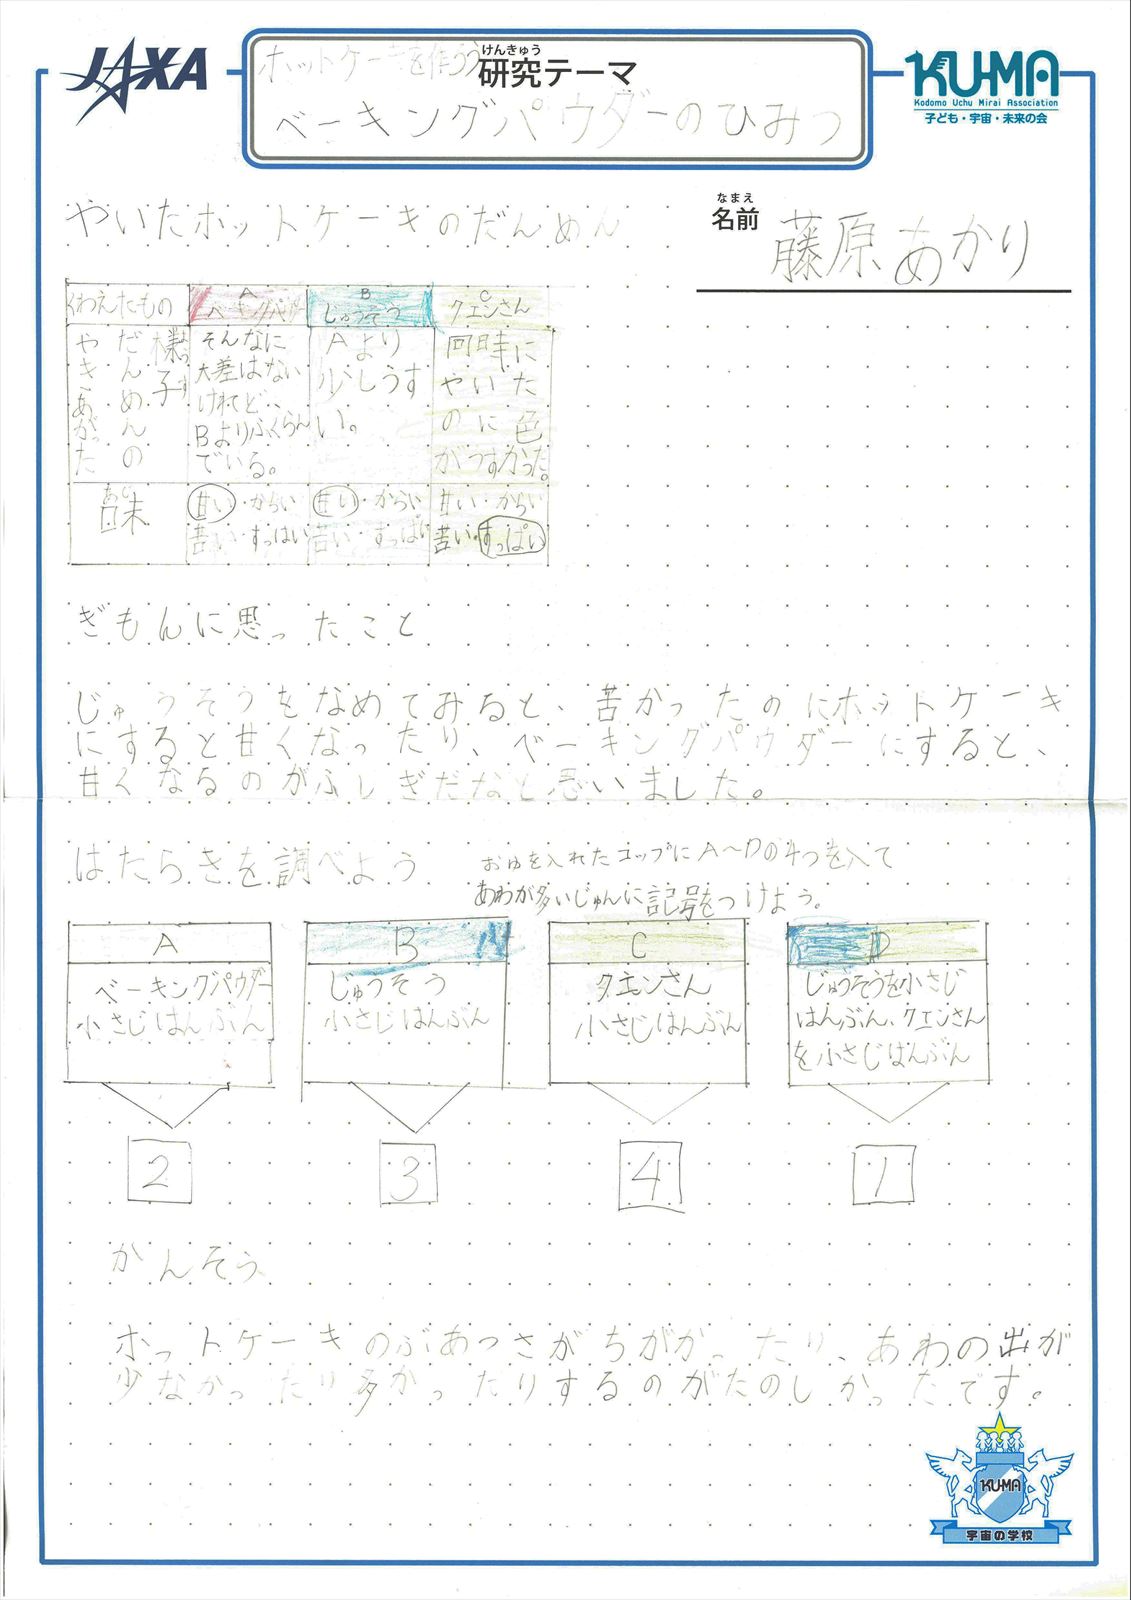 JAXA
けんきゅう
研究テーマ
ホットケーキを作ろう
ベーキングパウダーのひみつ
KU-MA
Kodomo Uchu Mirai Association
子ども・宇宙・未来の会
やいたホットケーキのだんめん
なまえ
名前
藤原あかり
くわえたもの
A
ベーキングパウダー
B
じゅうそう
C
クエンさん
やきあがった
だんめんの
様子
ようす
そんなに
大差はない
けれど、
Bよりふくらん
でいる。
Aより
少しうす
い。
同時に
やいた
のに色
がうすかった。
あじ
味
甘い・からい
苦い・すっぱい
甘い・からい
苦い・すっぱい
甘い・からい
苦い・すっぱい
ぎもんに思ったこと
じゅうそうをなめてみると、苦かったのにホットケーキ
にすると甘くなったり、ベーキングパウダーにすると、
甘くなるのがふしぎだなと思いました。
はたらきを調べよう
おゆを入れたコップにA〜Dの4つを入て
あわが多いじゅんに記号をつけよう。
A
ベーキングパウダー
小さじはんぶん
B
じゅうそう
小さじはんぶん
C
クエンさん
小さじはんぶん
D
じゅうそうを小さじ
はんぶん、クエンさん
を小さじはんぶん
2
3
4
1
かんそう
ホットケーキのぶあつさがちがかったり、あわの出が
少なかったり多かったりするのがたのしかったです。
KU-MA
宇宙の学校